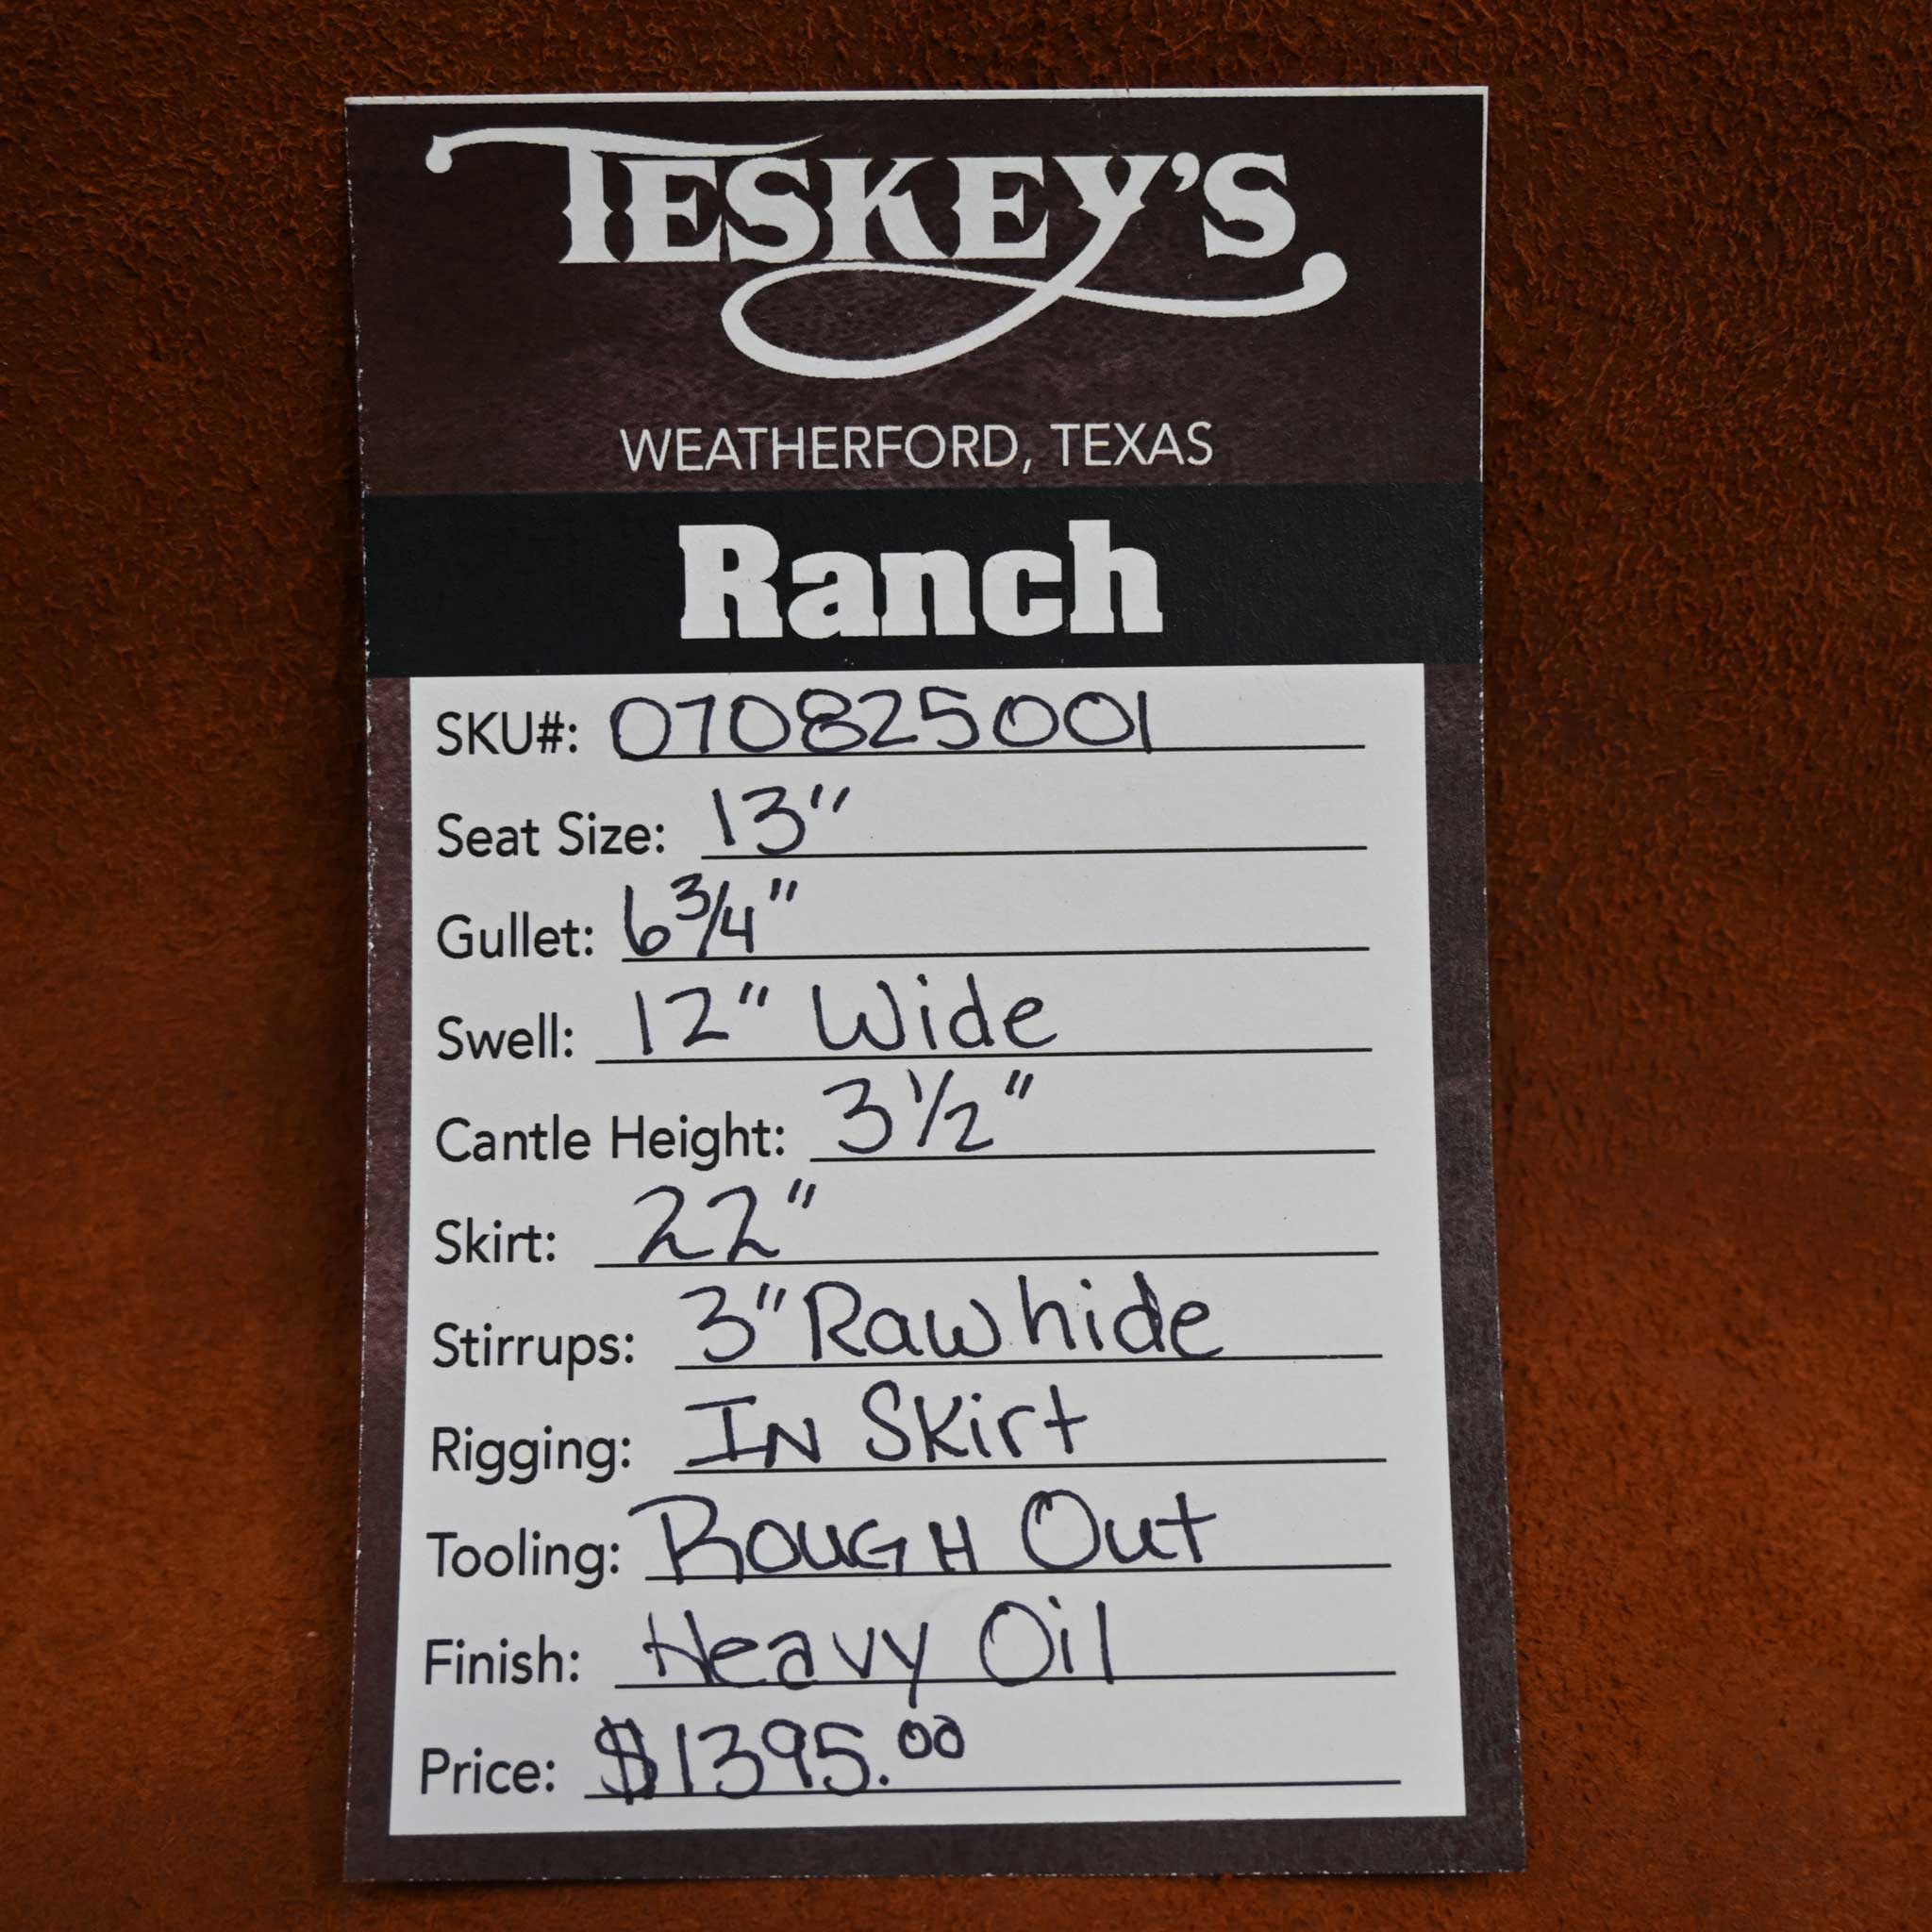 TESKEY'S
WEATHERFORD, TEXAS
Ranch
SKU#: 070825001
Seat Size: 13"
Gullet: 6 3/4"
Swell: 12" Wide
Cantle Height: 3 1/2"
Skirt: 22"
Stirrups: 3" Rawhide
Rigging: IN Skirt
Tooling: ROUGH Out
Finish: Heavy Oil
Price: $1395.00